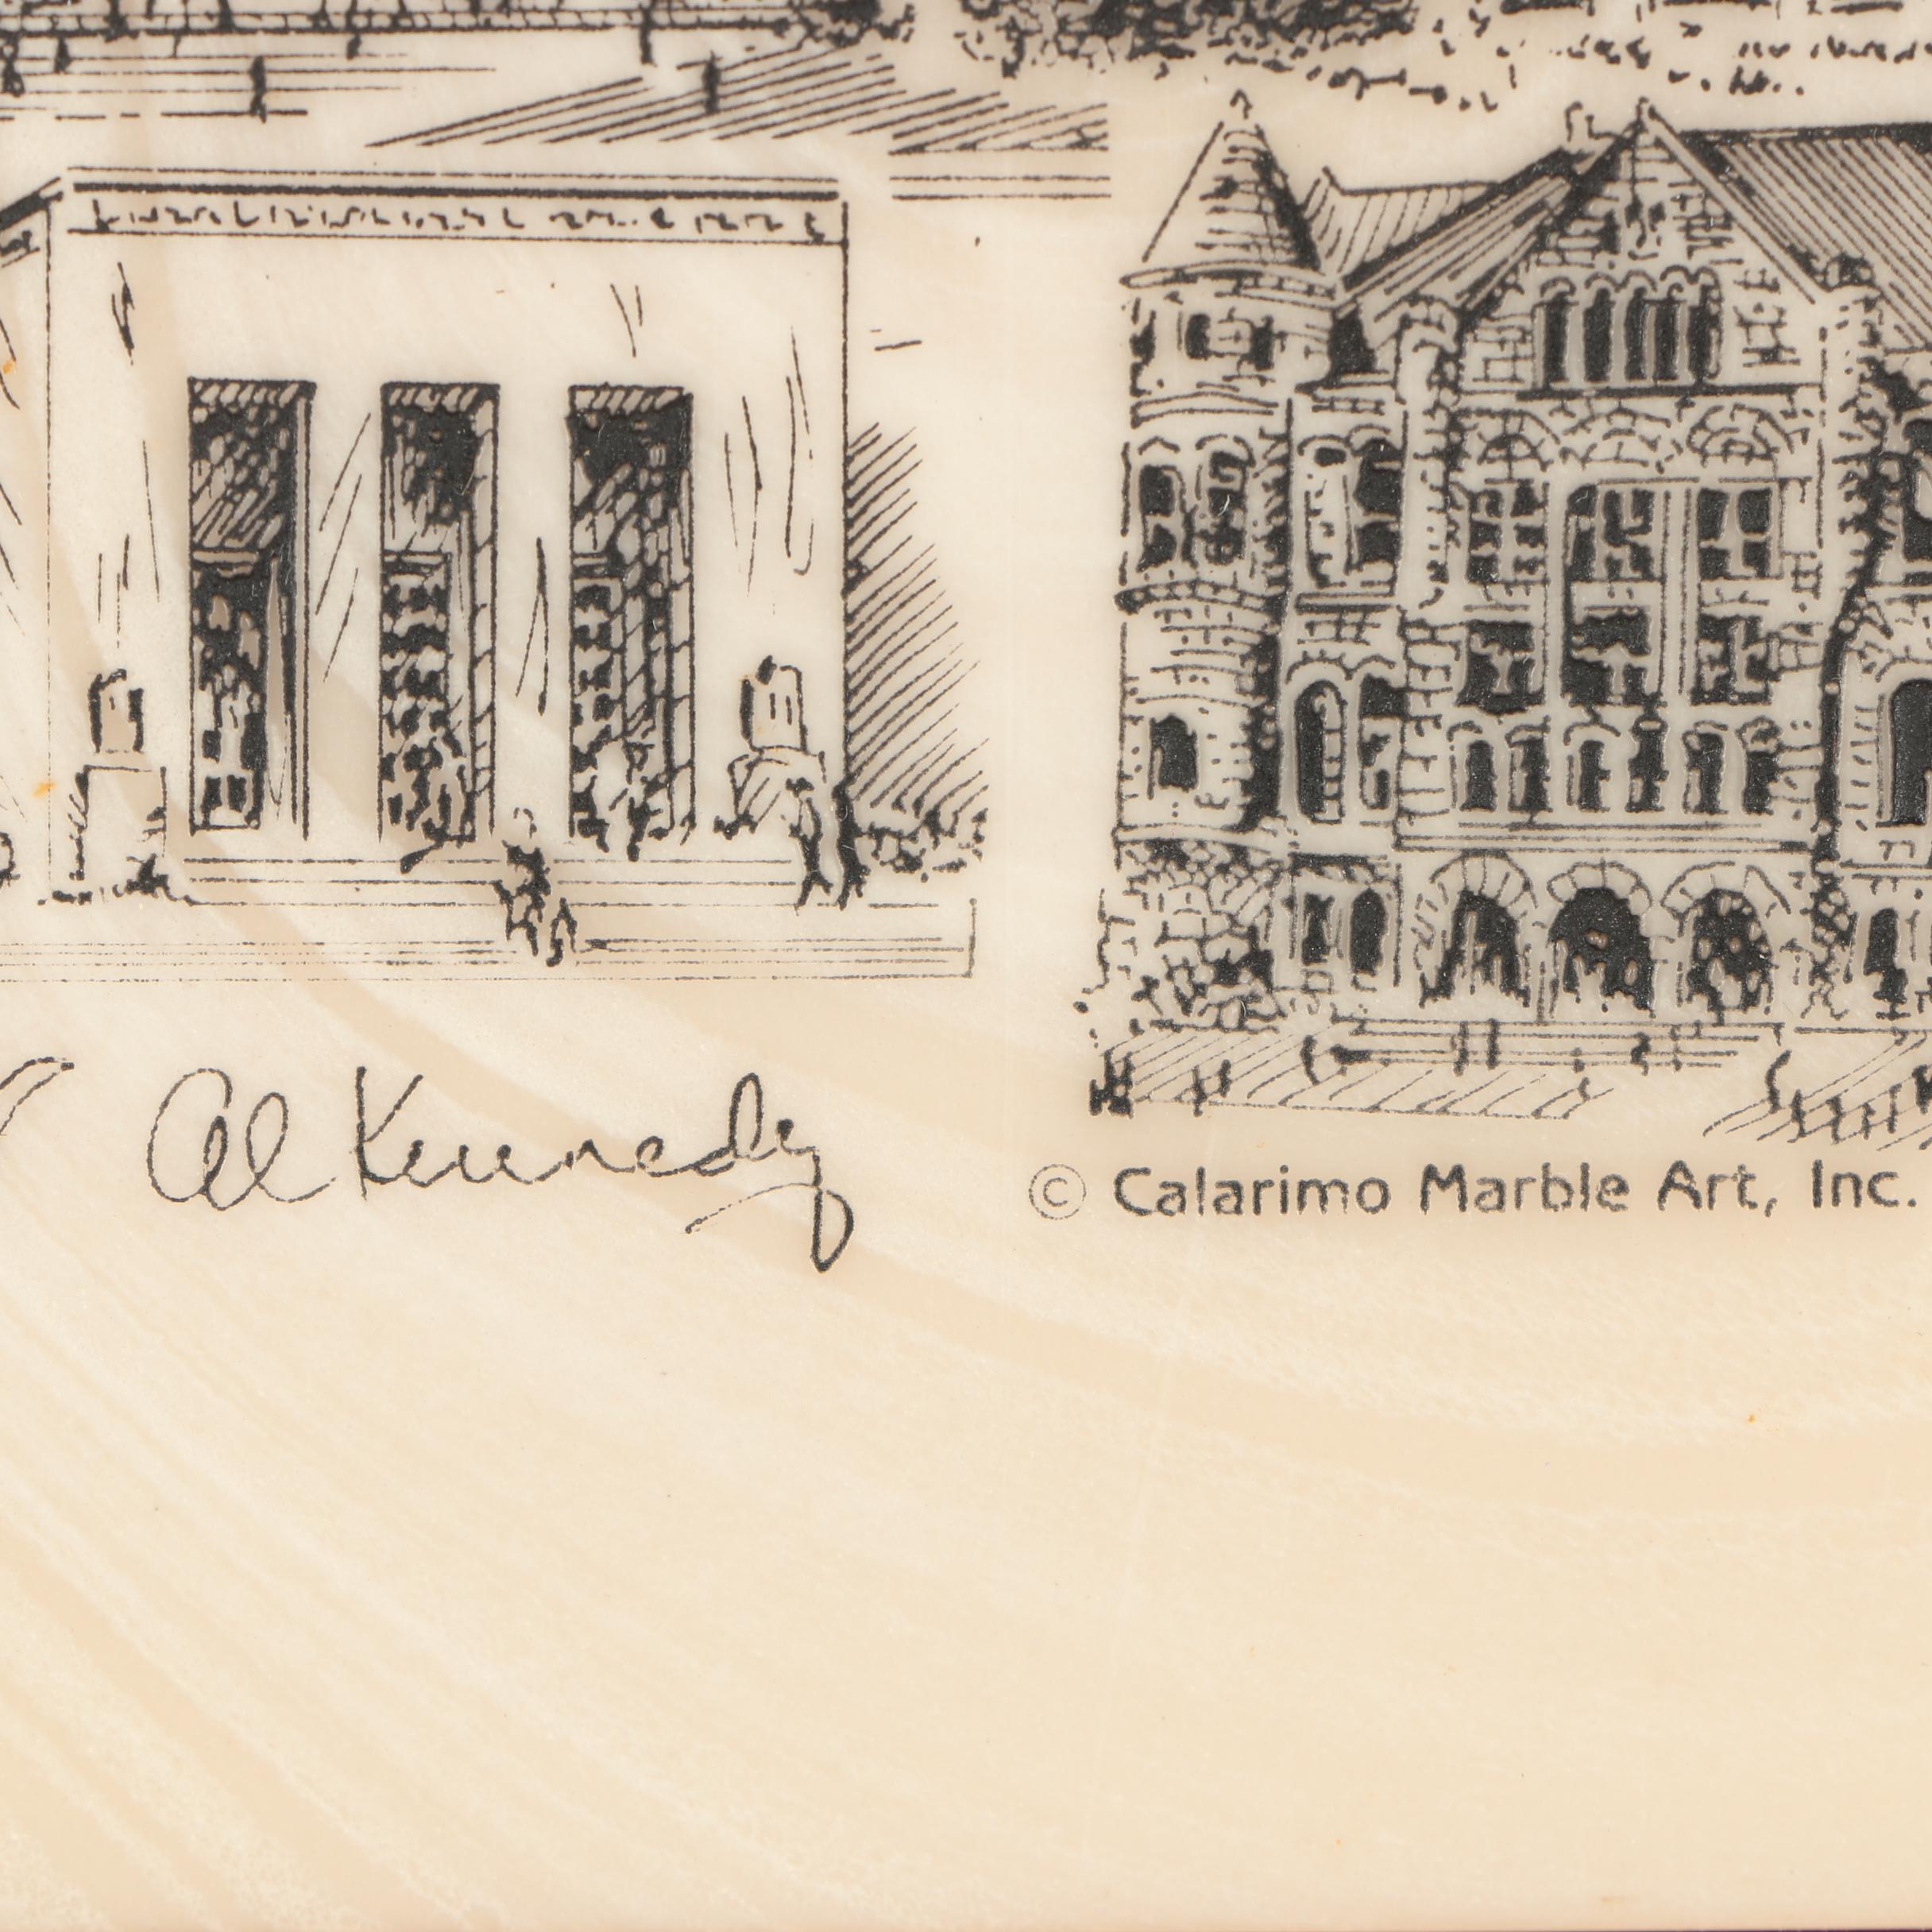 Al Kennedy
© Calarimo Marble Art, Inc.